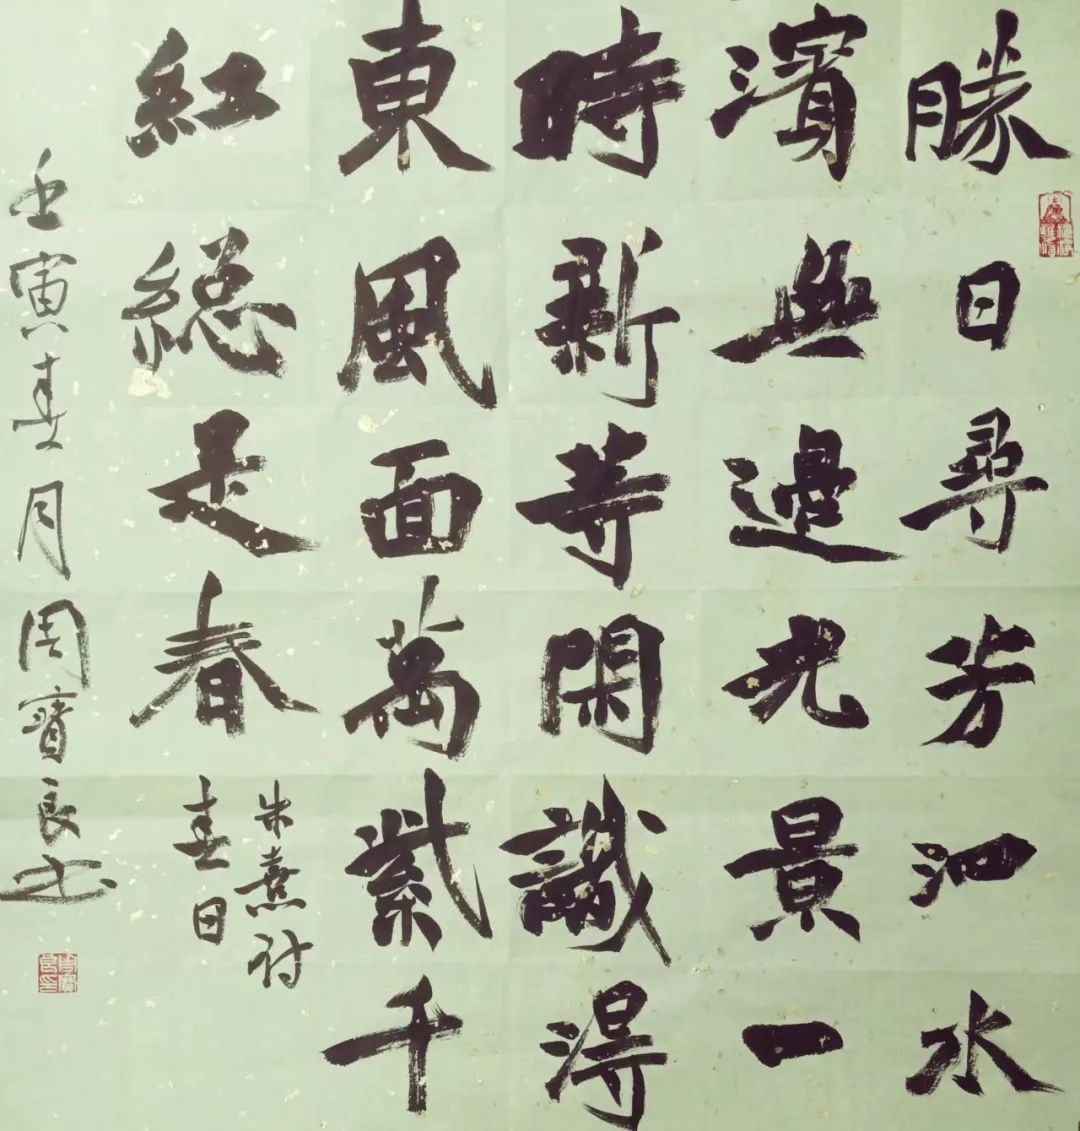 勝日尋芳泗水
濱無邊光景一
時新等閑識得
東風面萬紫千
紅總是春
朱熹詩
春日
壬寅春月周寶良书